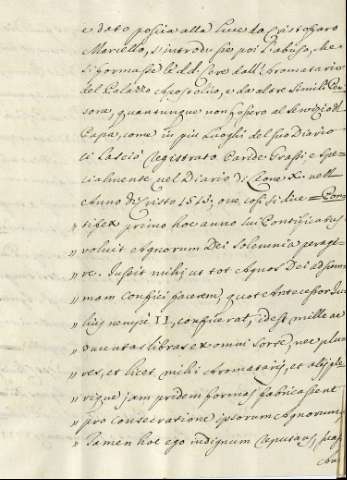 e dato poscia alla luce da Cristoforo
Marcello, s'introdusse poi l'abuso, che
si formasse le dd. Cere dall'Aromatario
del Palazzo Apostolico, e da altre simili Per
sone, quantunque non fossero al servizio del
Papa, come in più luoghi del suo Diario
ci lasciò registrato Paride Grassi, e spe
cialmente nel Diario di Leone X. nell'
Anno di Cristo 1513, ove così si dice = Pon-
" tifex primo hoc anno sui Pontificatus
" voluit Agnorum Dei solemnia perage
" re. Jussit mihi, ut tot Agnos Dei ad sum
" mam confici facerem, quot Antecessor Ju
" lius nempe II, confecerat, idest mille ac
" ducentas libras ex omni sorte, nec plu
" res, et licet mihi Aromatarii, et alii ple
" rique jam pridem formas fabricassent
" pro consecratione ipsorum Agnorum,
" Tamen hoc ego indignum reputans,